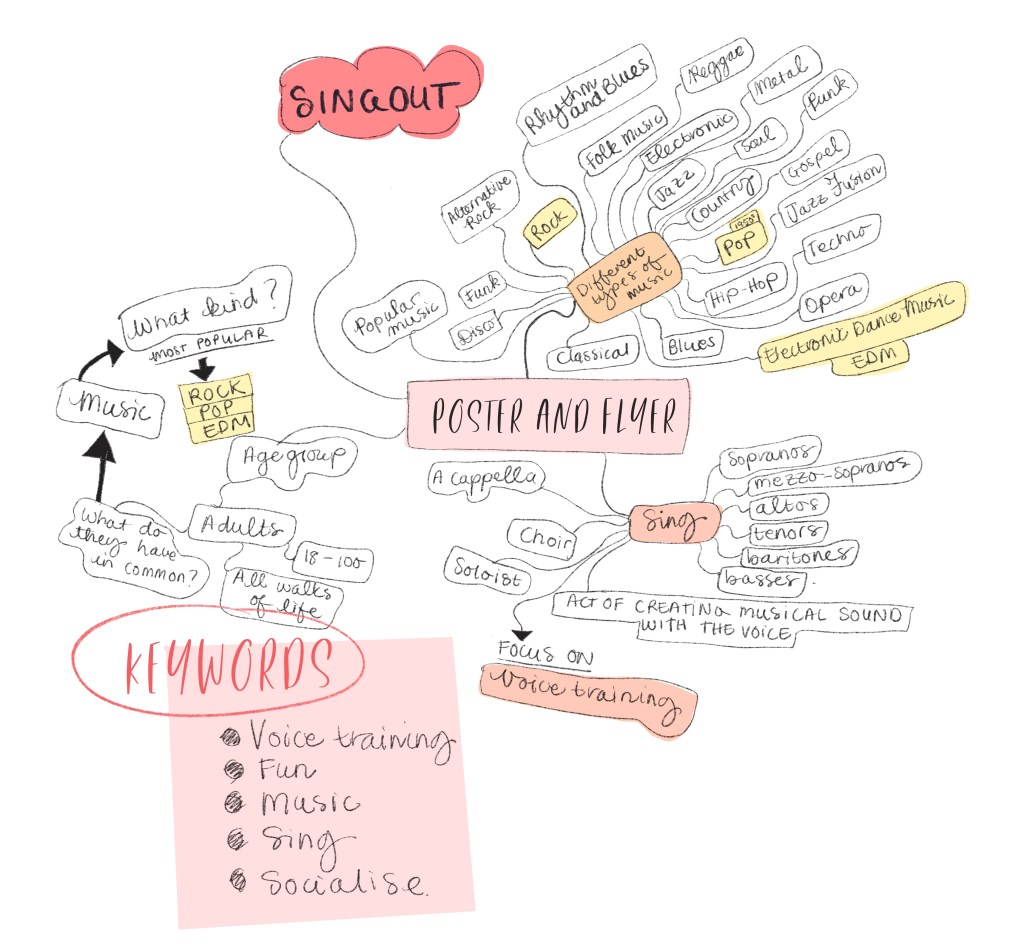 SINGOUT
Rhythm
and Blues
Reggae
Metal
Punk
Folk Music
Electronic
Soul
Gospel
Jazz
Country
Jazz Fusion
Alternative
Rock
Rock
1950s
POP
Techno
Different
types of
music
Hip-Hop
Opera
Popular
music
Funk
Disco
Classical
Blues
Electronic Dance Music
EDM
What kind?
MOST POPULAR
ROCK
POP
EDM
Music
POSTER AND FLYER
Age group
Adults
18-100
All walks
of life
What do
they have
in common?
A cappella
Choir
Soloist
Sing
Sopranos
mezzo-sopranos
altos
tenors
baritones
basses.
ACT OF CREATING MUSICAL SOUND
WITH THE VOICE
FOCUS ON
Voice training
KEYWORDS
Voice training
Fun
Music
Sing
Socialise.